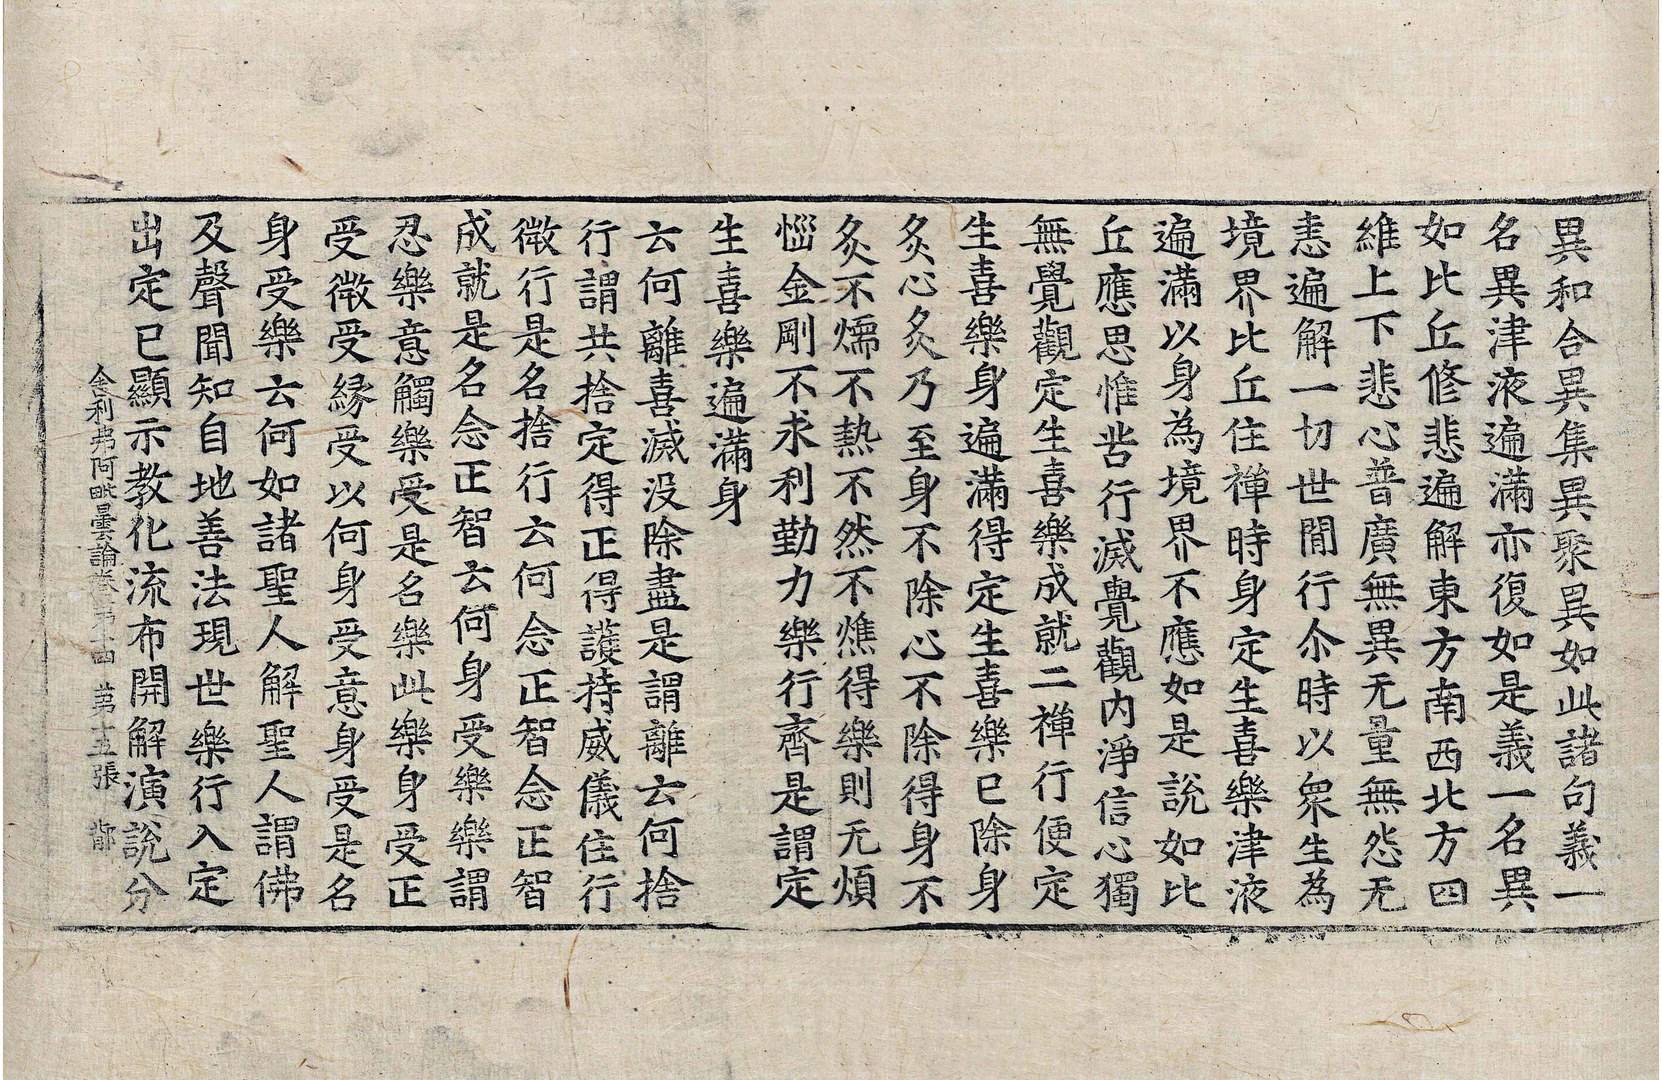 異和合異集異聚異如此諸句義一
名異津液遍滿亦復如是義一名異
如比丘修悲遍解東方南西北方四
維上下悲心普廣無異无量無怨无
恚遍解一切世間行尒時以衆生為
境界比丘住禪時身定生喜樂津液
遍滿以身為境界不應如是說如比
丘應思惟苦行滅覺觀內淨信心獨
無覺觀定生喜樂成就二禪行便定
生喜樂身遍滿得定生喜樂已除身
炙心炙乃至身不除心不除得身不
炙不燸不熱不然不燋得樂則无煩
惱金剛不求利勤力樂行齊是謂定
生喜樂遍滿身
云何離喜滅沒除盡是謂離云何捨
行謂共捨定得正得護持威儀住行
微行是名捨行云何念正智念正智
成就是名念正智云何身受樂樂謂
忍樂意觸樂受是名樂此樂身受正
受微受緣受以何身受意身受是名
身受樂云何如諸聖人解聖人謂佛
及聲聞知自地善法現世樂行入定
出定已顯示教化流布開解演說分
舍利弗阿毗曇論卷第十四 第十五張